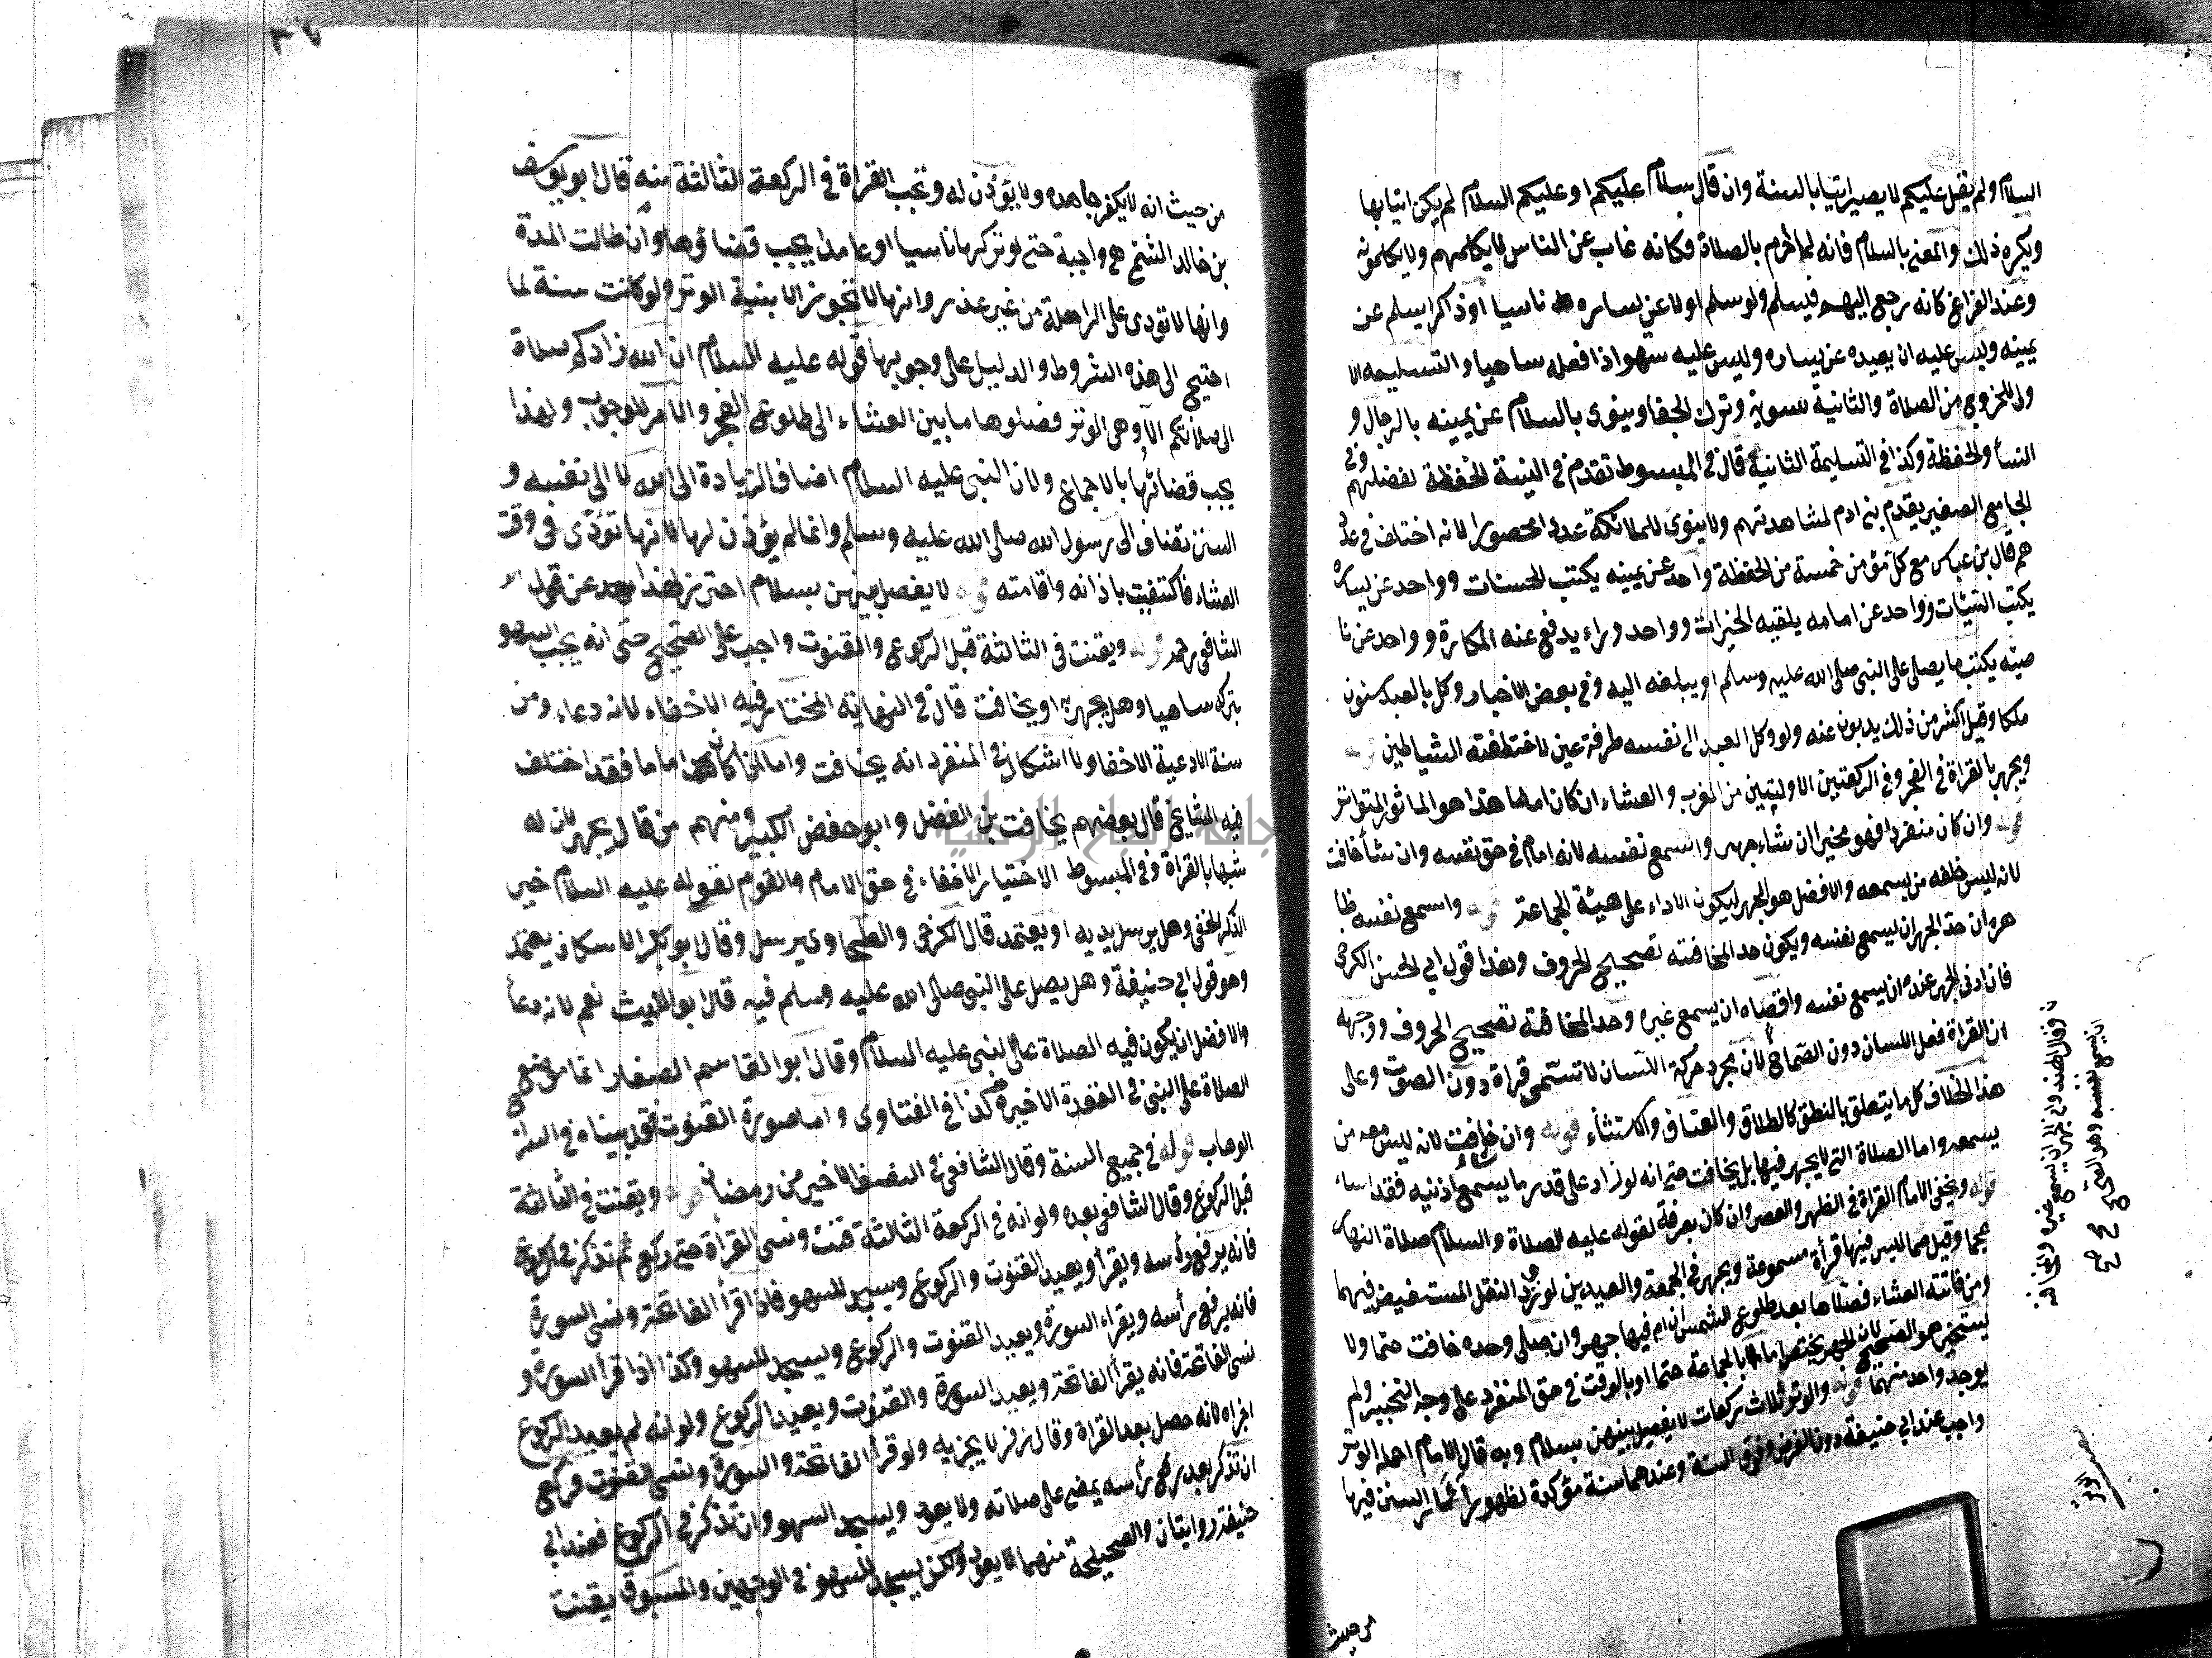 السلام ولم يقل عليكم لا يصير اتيا بالسنة وان قال سلام عليكم او عليكم السلام لم يكن اتيا بها
ويكره ذلك والمعنى بالسلام فانه لما احرم بالصلاة فكانه غاب عن الناس لا يكلمهم ولا يكلمونه
وعند الفراغ كانه رجع اليهم فيسلم ولو سلم اولا عن يساره ناسيا او ذاكرا يسلم عن
يمينه وليس عليه ان يعيده عن يساره وليس عليه سهو اذا فعله ساهيا والتسليمه الا
ولى للخروج من الصلاة والثانية للسوية وترك الجفا وينوى بالسلام عن يمينه بالرجال و
النسأ والحفظة وكذا في التسليمة الثانية وقال في المبسوط تقدم في النية الحفظة لفضلهم وفي
الجامع الصغير يقدم بني ادم لمشاهدتهم ولا ينوى للملائكة عددا محصورا لانه اختلف في عدد
هم قال بن عباس مع كل مؤمن خمسة من الحفظة واحد عن يمينه يكتب الحسنات وواحد عن يساره
يكتب السيئات وواحد عن امامه يلقيه الخيرات وواحد وراءه يدفع عنه المكاره وواحد عن نا
صيته يكتب ما يصلى على النبى صلى الله عليه وسلم او يبلغه اليه وفي بعض الاخبار وكل بالعبد ستون
ملكا وقيل اكثر من ذلك يذبون عنه ولو وكل العبد الى نفسه طرفة عين لاختطفته الشياطين قوله
ويجهر بالقراة في الفجر وفي الركعتين الاوليين من المغرب والعشاء ان كان اماما هذا هو الماثور المتواتر
قوله وان كان منفردا فهو مخير ان شاء جهر واسمع نفسه لانه امام في حق نفسه وان شأ خافت
لانه ليس خلفه من يسمعه والافضل هو الجهر ليكون الاداء على هيئة الجماعة قوله واسمع نفسه ظا
هره ان حد الجهر ان يسمع نفسه ويكون حد المخافتة تصحيح الحروف وهذا قول ابي الحسن الكرخي
فان ادنى الجهر عنده ان يسمع نفسه واقصاه ان يسمع غيره وحد المخافتة تصحيح الحروف ووجهه
ان القراة فعل اللسان دون الصماخ لان مجرد حركة اللسان لا تسمى قراة دون الصوت وعلى
هذا الخلاف كل ما يتعلق بالنطق كالطلاق والعتاق والاستثناء قوله وان شاء خافت لانه ليس معه من
يسمعه واما الصلاة التي لا يجهر فيها بل يخافت حتى انه لو زاد على قدر ما يسمع اذنيه فقد اساء
قوله ويخفى الامام القراة في الظهر والعصر وان كان بعرفة لقوله عليه الصلاة والسلام صلاة النهار
عجما وقيل صما ليس فيها قرأة مسموعة ويجهر في الجمعة والعيدين لورود النقل المستفيض فيهما
ومن فاتته العشاء فصلاها بعد طلوع الشمس ان ام فيها جهر وان صلى وحده خافت حتما ولا
يستخير هو الصحيح لان الجهر يختص اما بالجماعة حتما او بالوقت في حق المنفرد على وجه التخيير ولم
يوجد واحد منهما قوله والوتر ثلاث ركعات لا يفصل بينهن بسلام وبه قال الامام احمد الوتر
واجب عند ابي حنيفة دون الفرض وفوق السنة وعندهما سنة مؤكدة لظهور أثار السنن فيها
من حيث
وقال الهندواني الجهر ان يسمع غيره والمخافتة
ان يسمع نفسه وهو الصحيح
من حيث انه لا يكفر جاحده ولا يؤذن له وتجب القراة في الركعة الثالثة منه قال ابو يوسف
بن خالد الشيخ هي واجبة حتى لو تركها ناسيا او عامدا يجب قضاؤها وان طالت المدة
وانها لا تودى على الراحلة من غير عذر وانها لا تجوز الا بنية الوتر ولو كانت سنة لما
احتيج الى هذه الشروط والدليل على وجوبها قوله عليه السلام ان الله زادكم صلاة
الى صلاتكم الا وهى الوتر فصلوها ما بين العشاء الى طلوع الفجر والامر للوجوب ولهذا
يجب قضائها بالاجماع ولان النبى عليه السلام اضاف الزيادة الى الله لا الى نفسه و
السنن تضاف الى رسول الله صلى الله عليه وسلم وانما لم يؤذن لها لانها تؤدى في وقت
العشاء فاكتفيت باذانه واقامته قوله لا يفصل بينهن بسلام احترز بهذا عن قول
الشافعى رحمه قوله ويقنت فى الثالثة قبل الركوع والقنوت واجب على الصحيح حتى انه يجب السهو
بتركه ساهيا وهل يجهر به او يخافت قال في النهاية المختار فيه الاخفاء لانه دعاء ومن
سنة الادعية الاخفا ولا اشكال في المنفرد انه يخافت واما اذا كان اماما فقد اختلف
فيه المشايخ قال بعضهم يخافت بن الفضل وابو حفص الكبير ومنهم من قال يجهر لان له
شبها بالقراة وفي المبسوط الاختيار الاخفاء في حق الامام والقوم لقوله عليه السلام خير
الذكر الخفى وهل يرسل يديه او يعتمد قال الكرخى والطحاوى يرسل وقال ابو بكر الاسكاف يعتمد
وهو قول ابي حنيفة وهل يصل على النبى صلى الله عليه وسلم فيه قال ابو الليث نعم لانه دعأ
والافضل ان يكون فيه الصلاة على النبى عليه السلام وقال ابو القاسم الصفار انما موضع
الصلاة على النبى في القعدة الاخيرة كذا في الفتاوى واما صورة القنوت فقد بيناه في السراج
الوهاب قوله في جميع السنة وقال الشافعي في النصف الاخير من رمضان قوله ويقنت في الثالثة
قبل الركوع وقال الشافعى بعده ولو انه في الركعة الثالثة قنت ونسى القرأة حتى ركع ثم تذكر في الركوع
فانه يرفع رأسه ويقرأ ويعيد القنوت والركوع ويسجد للسهو فان قرأ الفاتحة ونسى السورة
فانه يرفع رأسه ويقراء السورة ويعيد القنوت والركوع ويسجد للسهو وكذا اذا قرأ السورة و
نسى الفاتحة فانه يقرأ الفاتحة ويعيد السورة والقنوت ويعيد الركوع ولو انه لم يعيد الركوع
اجزاه لانه حصل بعد القراة وقال زفر لا يجزيه ولو قرأ الفاتحة والسورة ونسى القنوت فركع
ان تذكر بعد رفع رأسه يمضى على صلاته ولا يعود ويسجد للسهو وان تذكر في الركوع فعند ابي
حنيفة روايتان والصحيحة منهما لا يعود ولكن يسجد للسهو في الوجهين والمسبوق يقنت
جامعة النجاح الوطنية